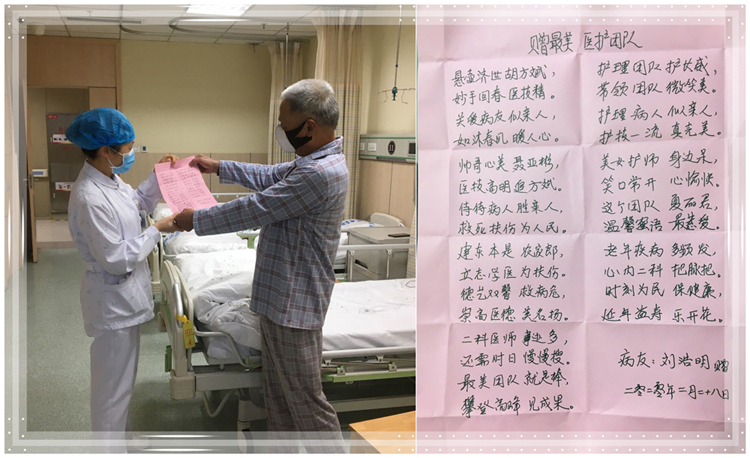 赠最美 医护团队
悬壶济世 胡方斌,
妙手回春 医技精。
关爱病友 似亲人,
如沐春风 暖人心。
帅哥心美 聂亚
医技高明 追方斌。
待病人 胜亲人,
救死扶伤 为人民。
建东本是 农家郎,
立志学医 为扶伤。
德艺双馨 救病危,
崇高医德 美名扬。
二科医师 事迹多,
还需时日 慢慢搜。
最美团队 就是棒,
攀登高峰 见成果。
护理团队 护长
带领团队 微笑美。
护理病人 似亲人,
护技一流 真完美。
美女护师 身边呆,
笑口常开 心愉快。
这个团队
温馨蜜语
老年疾病 多频发,
心内二科 把脉把。
时刻为民 保健康,
延年益寿 乐开花。
病友:刘浩明 赠
二零二零年二月二十八日